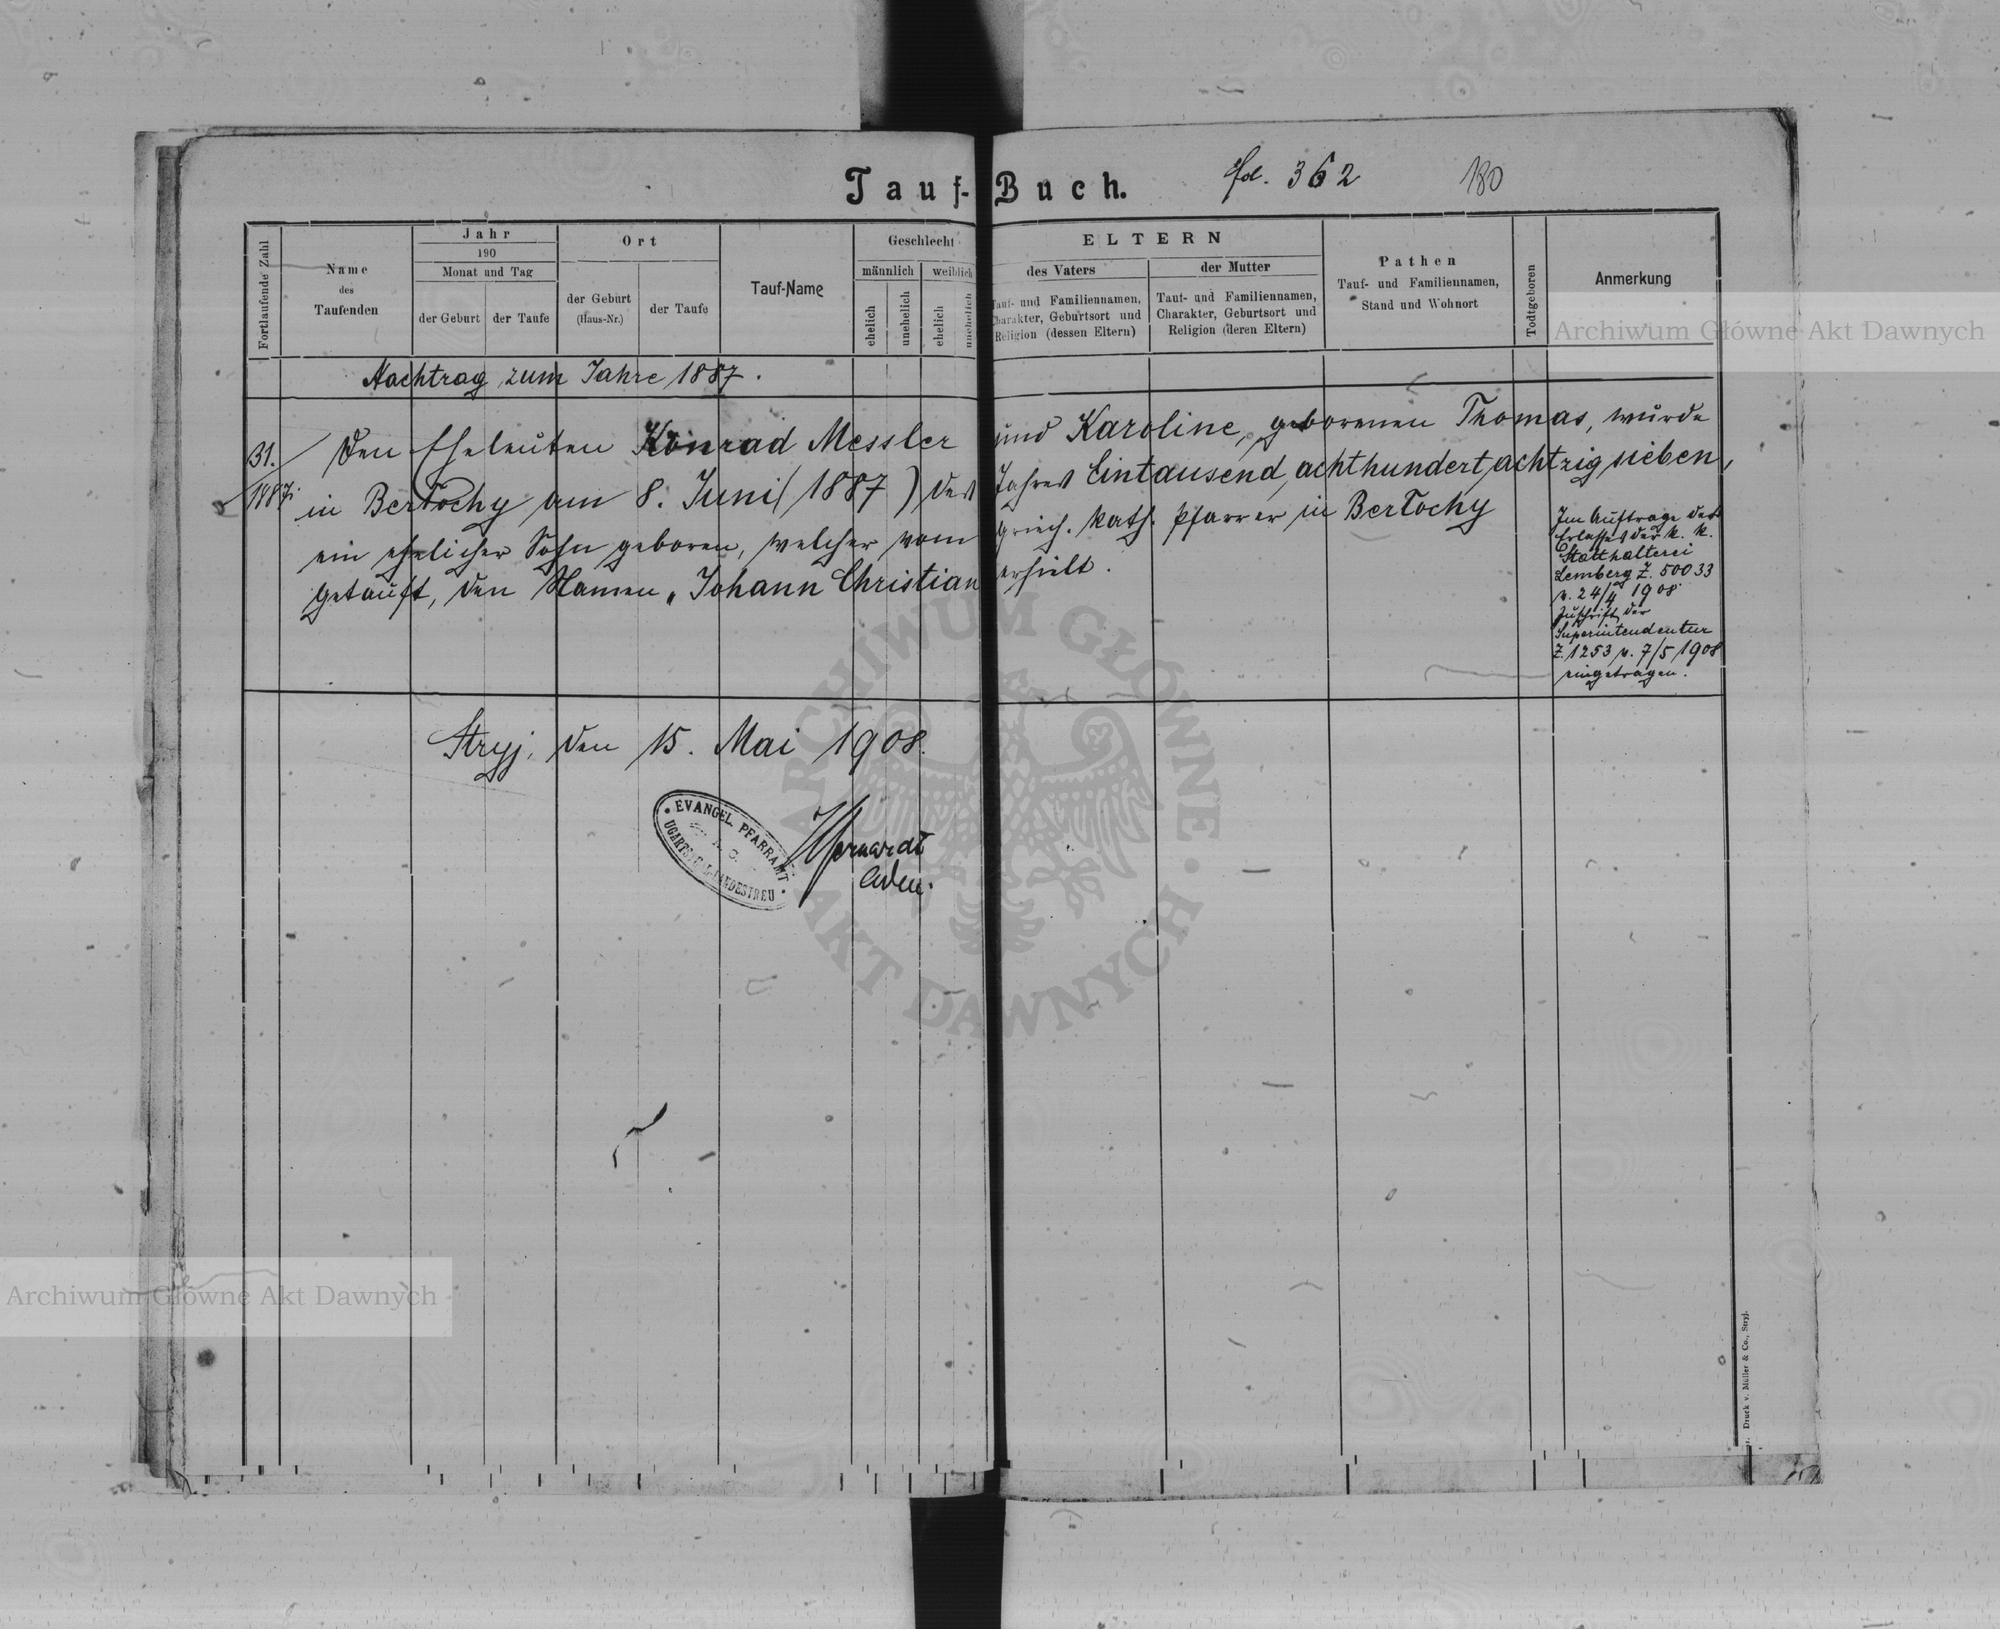 Tauf-Buch.
fol. 362
180
Fortlaufende Zahl
Name
des
Taufenden
Jahr
190
Monat und Tag
der Geburt
der Taufe
Ort
der Geburt
(Haus-Nr.)
der Taufe
Tauf-Name
Geschlecht
männlich
weiblich
ehelich
unehelich
ehelich
unehelich
ELTERN
des Vaters
Tauf- und Familiennamen,
Charakter, Geburtsort und
Religion (dessen Eltern)
der Mutter
Tauf- und Familiennamen,
Charakter, Geburtsort und
Religion (deren Eltern)
Pathen
Tauf- und Familiennamen,
Stand und Wohnort
Todtgeboren
Anmerkung
Archiwum Główne Akt Dawnych
Nachtrag zum Jahre 1887.
31./1887.
Den Eheleuten Konrad Messler und Karoline, geborenen Thomas, wurde
in Bertochy am 8. Juni (1887) des Jahres Eintausend, achthundert, achtzig sieben,
ein ehelicher Sohn geboren, welcher vom griech. kath. Pfarrer in Bertochy
getauft, den Namen „Johann Christian erhielt.
Im Auftrage des
Erlasses der k. k.
Statthalterei
Lemberg Z. 50033
v. 24/4 1908
Zuschrift der
Superintendentur
Z. 1253 v. 7/5 1908
eingetragen.
Stryj, den 15. Mai 1908.
EVANGEL. PFARRAMT
A. C.
UGARTSBERG-LANDESTREU
ARCHIWUM GŁÓWNE AKT DAWNYCH
Archiwum Główne Akt Dawnych
Druck v. Müller & Co., Stryj.